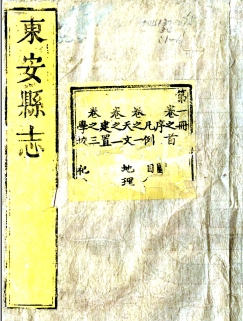 東安縣志
第一冊
卷之首
序
凡例 目
卷之一
天文 地理
卷之二
建置
卷之三
學校 祀